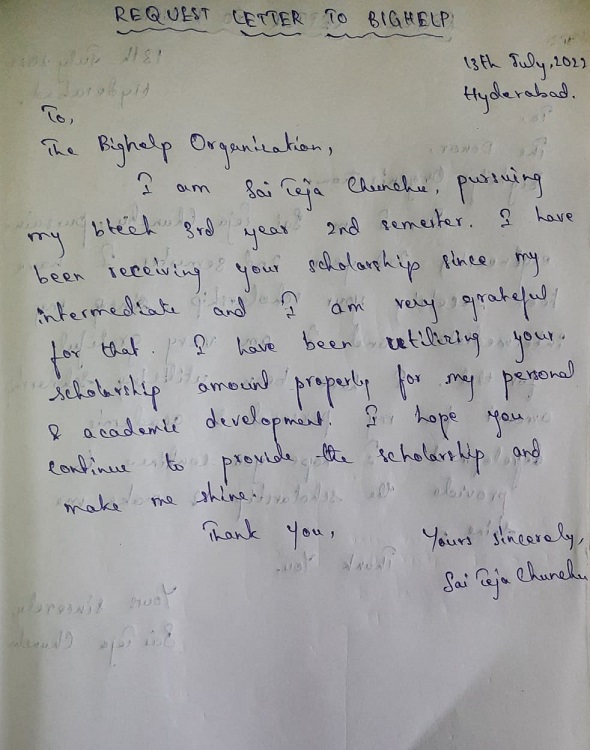 REQUEST LETTER TO BIGHELP
13th July, 2022
Hyderabad.
To,
The Bighelp Organization,
I am Sai Teja Chunchu, pursuing
my btech 3rd year 2nd semester. I have
been receiving your scholarship since my
intermediate and I am very grateful
for that. I have been utilizing your
scholarship amount properly for my personal
& academic development. I hope you
continue to provide the scholarship and
make me shine.
Thank you,
Yours sincerely,
Sai Teja Chunchu